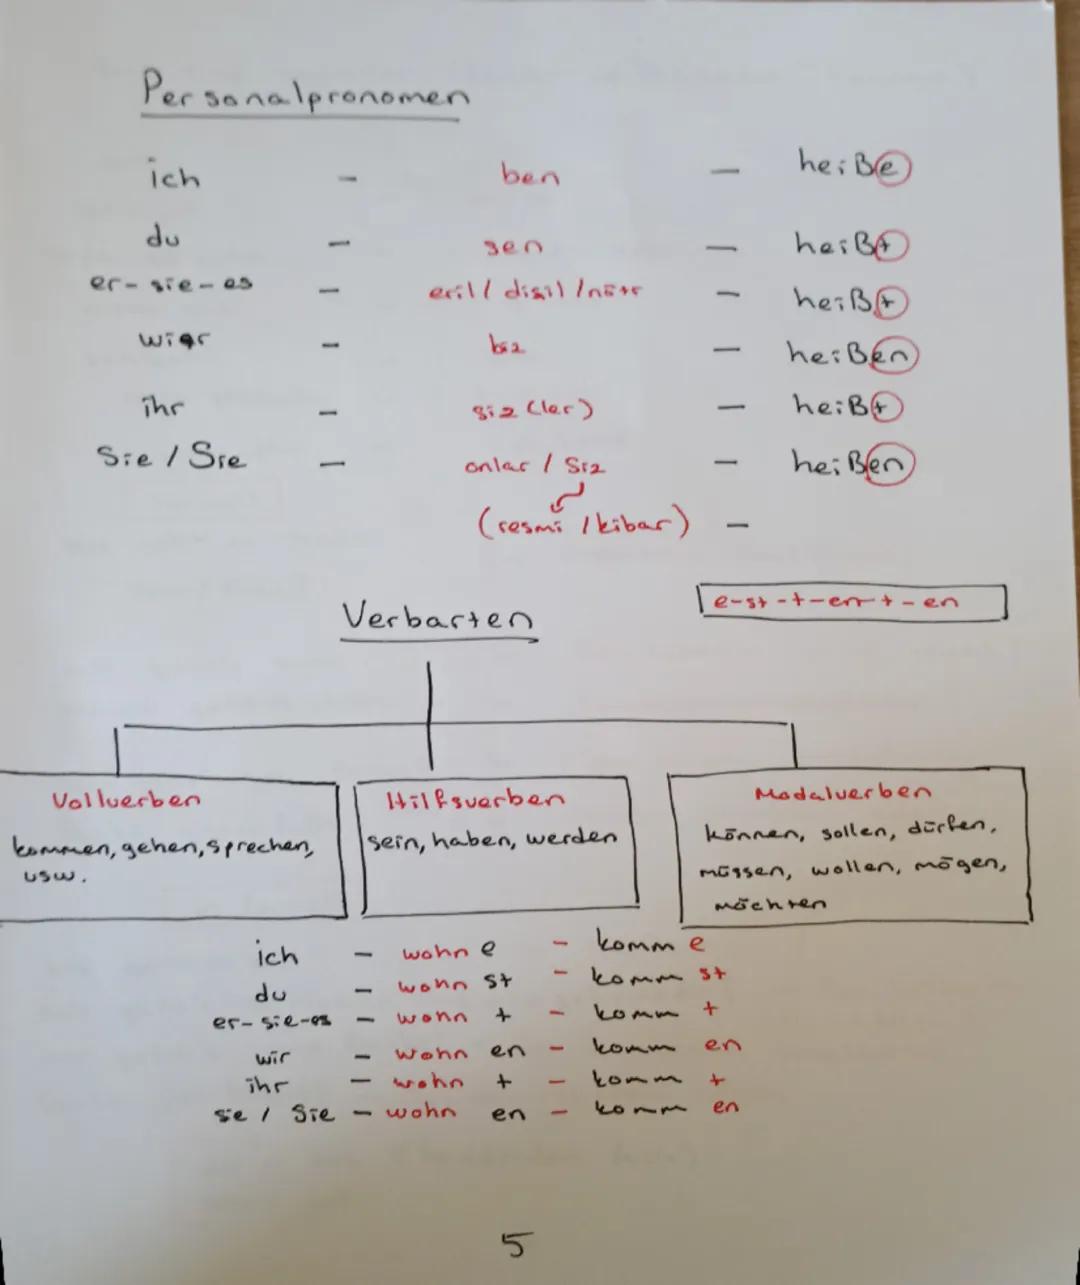 Personalpronomen
ich - ben - heiße
du - sen - heißt
er-sie-es - eril / dişil / nötr - heißt
wir - biz - heißen
ihr - siz (ler) - heißt
Sie / Sie - onlar / Siz - heißen
(resmi / kibar) -
e-st-t-en-t-en
Verbarten
Vollverben
kommen, gehen, sprechen,
usw.
Hilfsverben
sein, haben, werden
Modalverben
können, sollen, dürfen,
müssen, wollen, mögen,
möchten
ich - wohne - komme
du - wohnst - kommst
er-sie-es - wohnt - kommt
wir - wohnen - kommen
ihr - wohnt - kommt
sie / Sie - wohnen - kommen
5